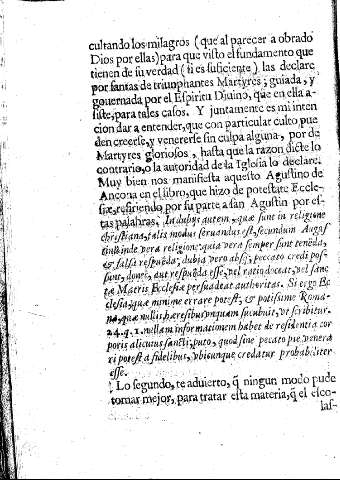 cultando los milagros ( que al parecer a obrado
Dios por ellas) para que visto el fundamento que
tienen de su verdad ( si es suficiente ) las declare
por santas de triunphantes Martyres; guiada, y
gouernada por el Espiritu Diuino, que en ella a-
siste, para tales casos. Y juntamente es mi inten
cion dar a entender, que con particular culto pue
den creerse, y venererse sin culpa alguna, por de
Martyres gloriosos, hasta que la razon dicte lo
contrario, o la autoridad de la Iglesia lo declare.
Muy bien nos manifiesta aquesto Agustino de
Ancona en el libro, que hizo de potestate Eccle-
siæ, refiriendo por su parte a san Agustin por es-
tas palabras. In dubijs autem, quæ sunt in religione
christiana, talis modus seruandus est, secundum Augus
de vera religione: quia vera semper sunt tenēda,
& falsa respuēda; dubia vero absq; peccato credi pos-
sunt, donec, aut respuēda esse, vel ratio doceat, vel sanc
tæ Matris Ecclesiæ persuadeat authoritas. Si ergo Ec
clesia, quæ minime errare potest; & potissime Roma-
na, quæ nullis hæresibus vnquam sucubuit, vt scribitur.
24. q. 1. nullam informationem habet de residentia cor
poris alicutus sancti; puto, quod sine pecato pie venera
ri potest a fidelibus, vbicunque credatur probabiliter
esse.
Lo segundo, te aduierto, q̄ ningun modo pude
tomar mejor, para tratar esta materia, q̄ el esco-
las-